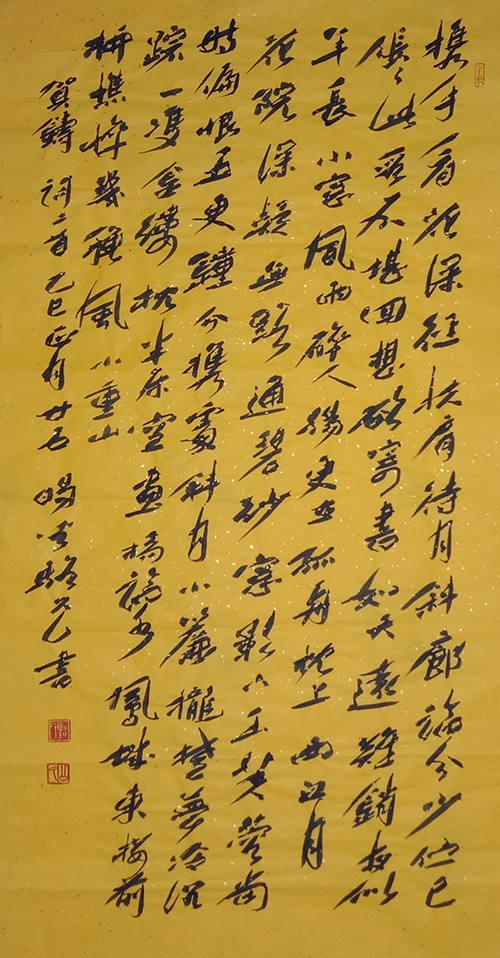 携手看花深徑扶肩待月斜廊臨分少伫已
倀々此段不堪回想欲寄書如天遠難銷夜似
年長小窓風雨碎人腸更在孤舟枕上西江月
花院深疑無路通碧紗窓影下玉芙蓉當
時偏恨五更鐘分携處斜月小簾櫳楚夢冷沉
踪一雙金縷枕半床空畫橋臨水鳳城東樓前
柳憔悴幾秋風小重山
賀鑄词二首乙巳正月廿五駱書